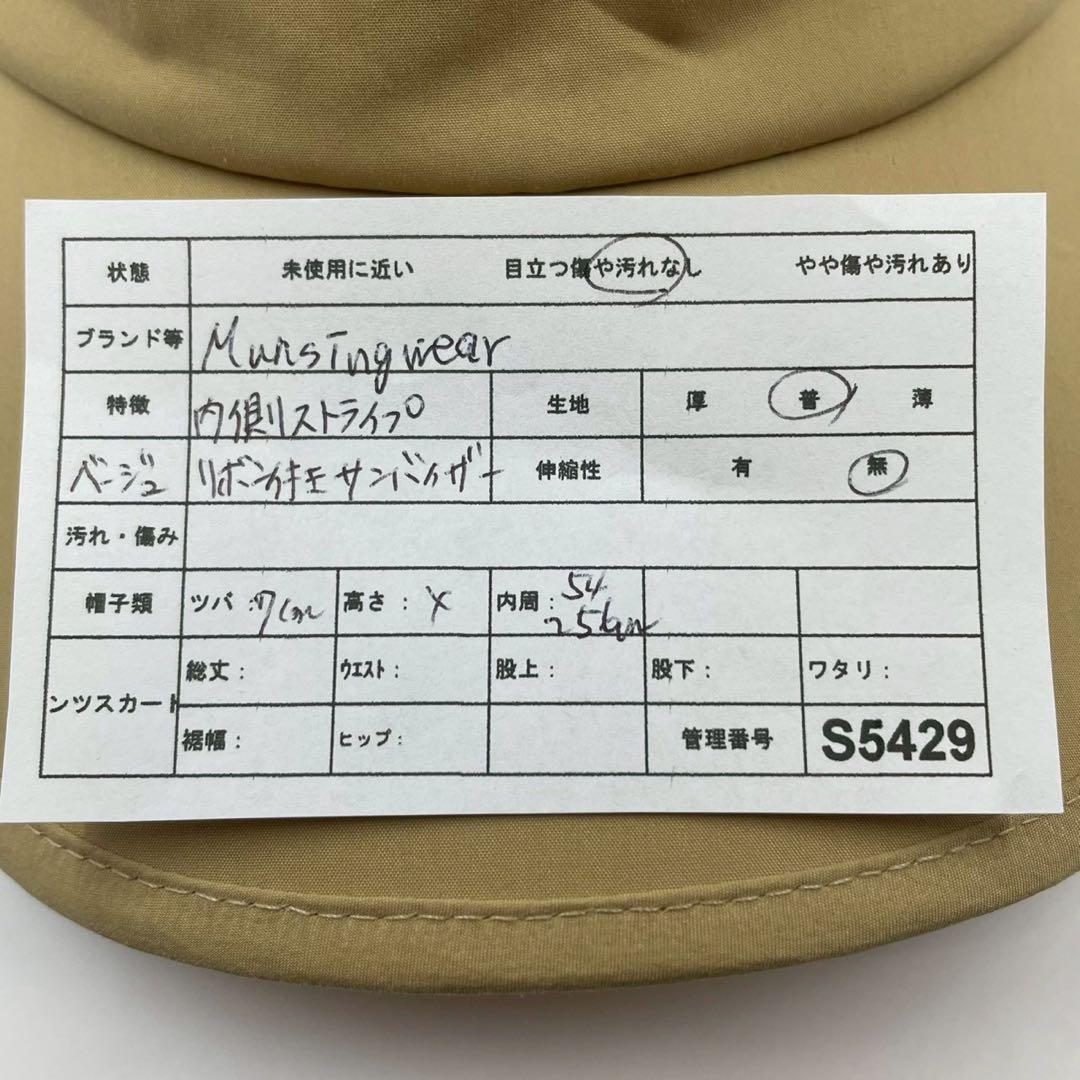 状態 未使用に近い 目立つ傷や汚れなし やや傷や汚れあり
ブランド等 Munsingwear
特徴 内側ストライプ 生地 厚 普 薄
ベージュ リボン付き サンバイザー 伸縮性 有 無
汚れ・傷み
帽子類 ツバ:7cm 高さ: 内周:54
~56cm
ンツスカート 総丈: ウエスト: 股上: 股下: ワタリ:
裾幅: ヒップ: 管理番号 S5429